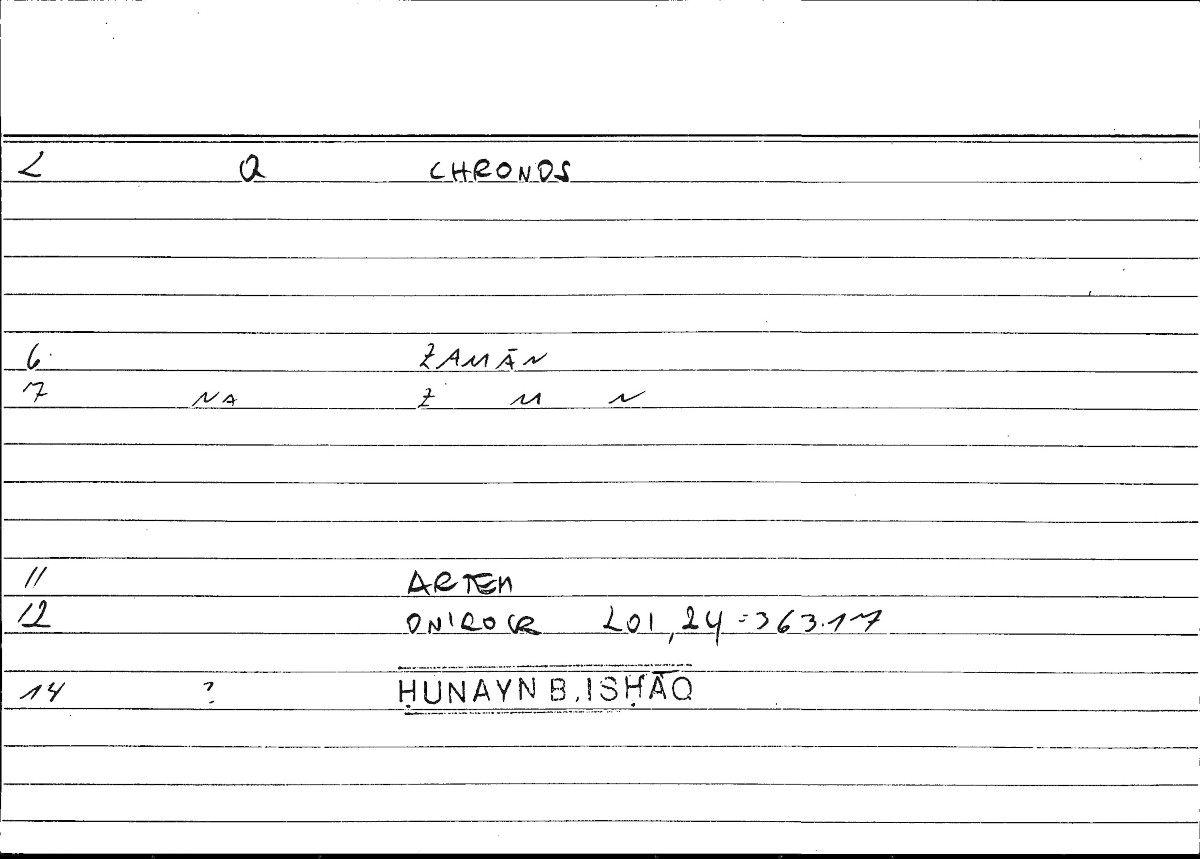 2 Q CHRONOS
6 ZAMĀN
7 NA Z M N
11 ARTEM
12 ONIROCR 201,24=363.17
14 ? ḤUNAYN B. ISḤĀQ